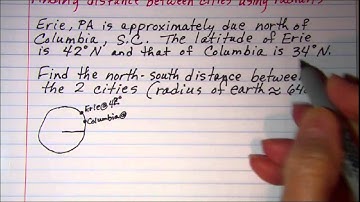 Finding distance between cities using radians
Erie, PA is approximately due north of
Columbia, S.C. The latitude of Erie
is 42° N and that of Columbia is 34° N.
Find the north-south distance between
the 2 cities (radius of earth ≈ 640
Erie@42°
Columbia@